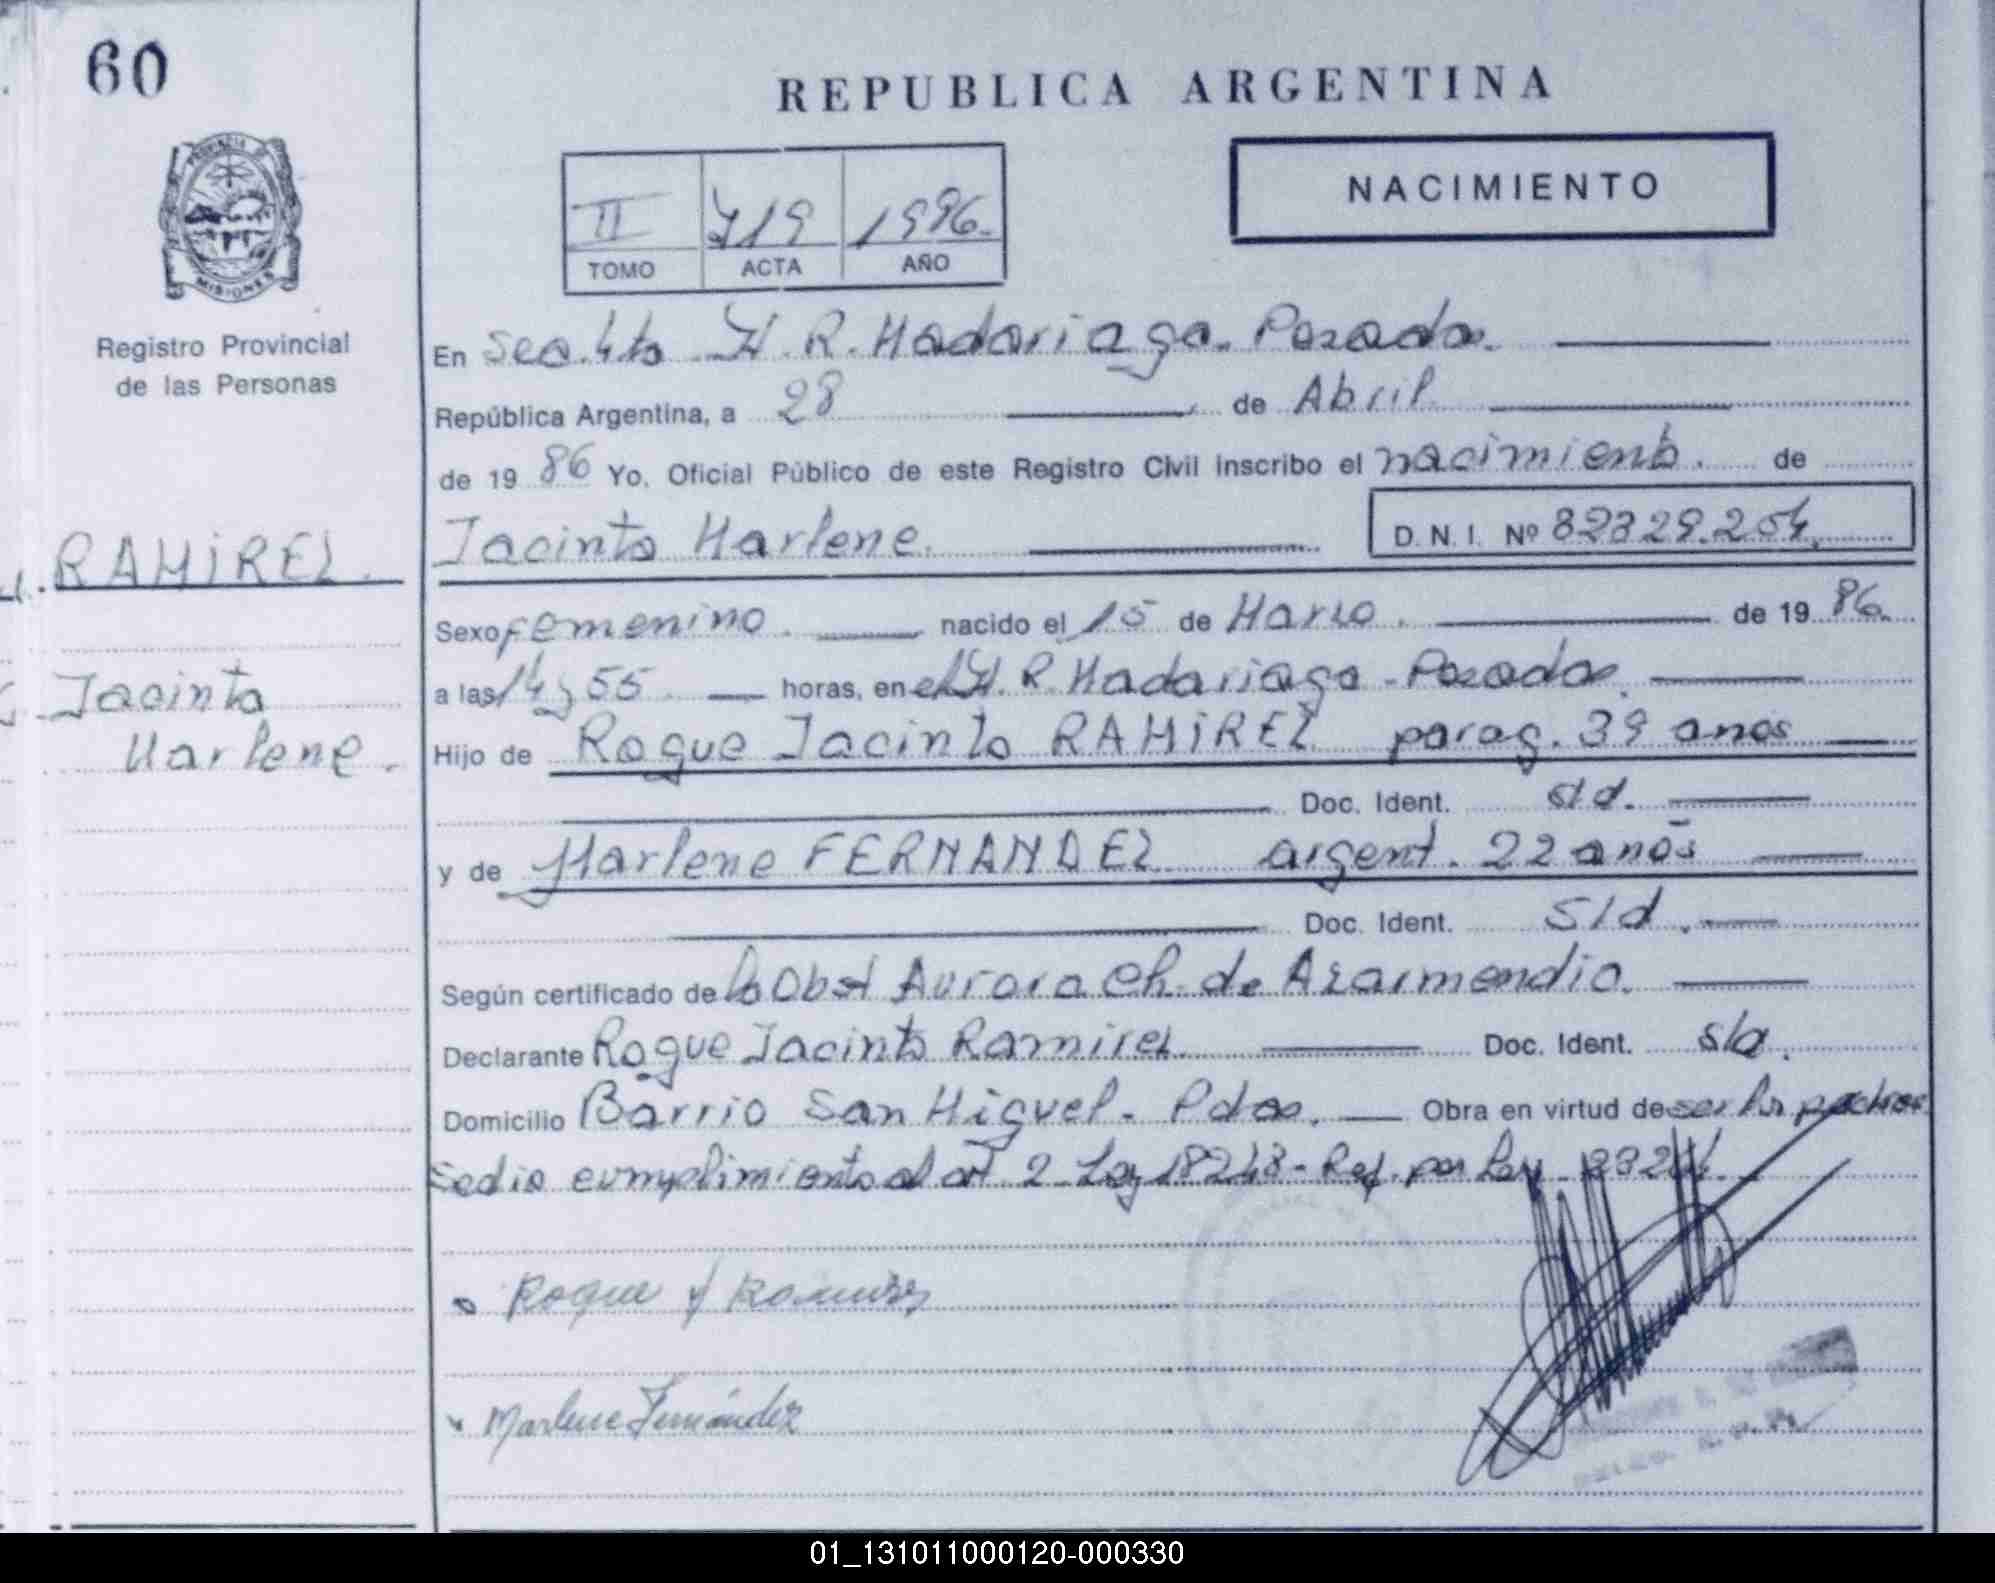 60
REPUBLICA ARGENTINA
NACIMIENTO
II 719 1996.
TOMO ACTA AÑO
PROVINCIA
MISIONES
Registro Provincial
de las Personas
En Sec. 4ta H. R. Madariaga. Posadas.
República Argentina, a 28 de Abril
de 19 86 Yo, Oficial Público de este Registro Civil inscribo el nacimiento. de
Jacinta Marlene. D. N. I. Nº 32329.254.
RAMIREZ.
Sexo femenino. nacido el 15 de Marzo. de 19 86.
a las 14 y 55 horas, en el H. R. Madariaga - Posadas.
Jacinta
Marlene.
Hijo de Roque Jacinto RAMIREZ parag. 39 anos
Doc. Ident. s/d.
y de Marlene FERNANDEZ argent. 22 años
Doc. Ident. S/d.
Según certificado de la Obst Aurora Ch. de Azarmendia.
Declarante Roque Jacinto Ramirez Doc. Ident. s/d.
Domicilio Barrio San Miguel. Pdas. Obra en virtud de ser los padres
se dio cumplimiento al art 2 Ley 18248 - Ref. por Ley
Roque J Ramirez
Marlene Fernández
01_131011000120-000330